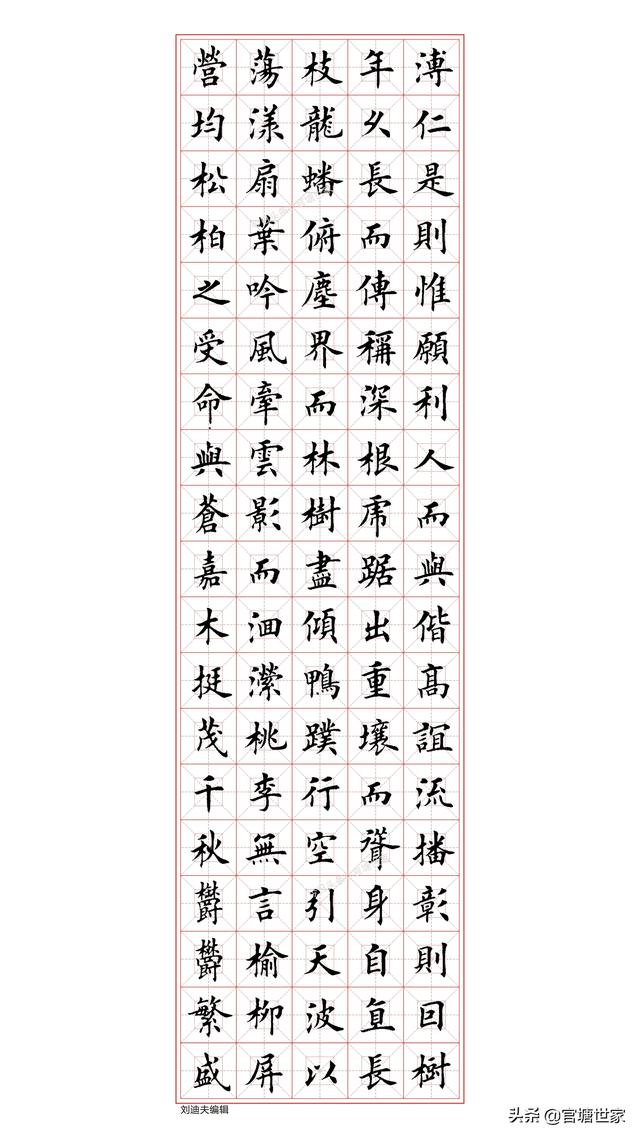 溥仁是則惟願利人而與偕高誼流播彰則回樹
年久長而傳稱深根虎踞出重壤而聳身自直長
枝龍蟠俯塵界而林樹盡傾鴨蹼行空引天波以
蕩漾扇葉吟風牽雲影而洄瀠桃李無言榆柳屏
營均松柏之受命與蒼嘉木挺茂千秋鬱鬱繁盛
刘迪夫编辑
头条 @官塘世家